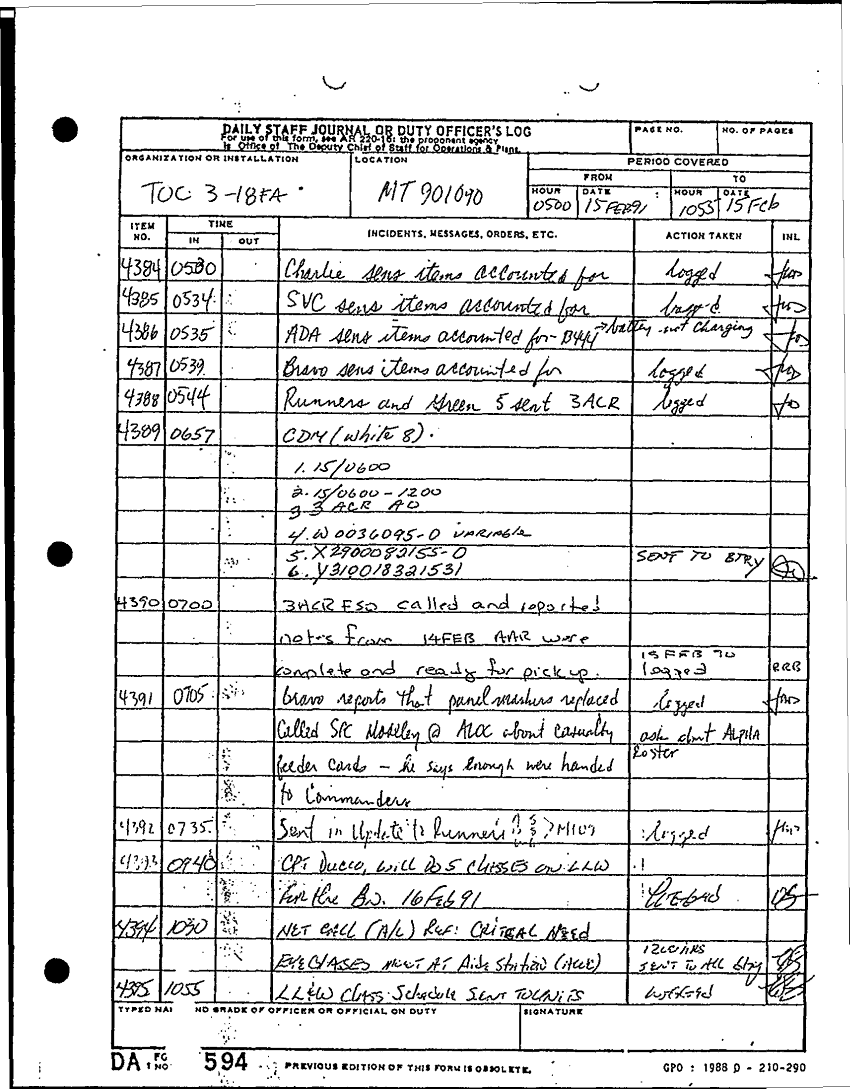 DAILY STAFF JOURNAL OR DUTY OFFICER'S LOG
For use of this form, see AR 220-15: the proponent agency
is Office of The Deputy Chief of Staff for Operations & Plans.
PAGE NO.
NO. OF PAGES
ORGANIZATION OR INSTALLATION
TOC 3-18FA
LOCATION
MT 901090
PERIOD COVERED
FROM
TO
HOUR
0500
DATE
15 FEB 91
HOUR
1055
DATE
15 Feb
ITEM NO.
TIME
IN
OUT
INCIDENTS, MESSAGES, ORDERS, ETC.
ACTION TAKEN
INL
4384 0530 Charlie sens items accounted for logged
4385 0534 SVC sens items accounted for logged
4386 0535 ADA sens items accounted for - B44 → battery not charging
4387 0539 Bravo sens items accounted for logged
4388 0544 Runners and Green 5 sent 3ACR logged
4389 0657 CDM (White 8).
1. 15/0600
2. 15/0600 - 1200
3. 3 ACR AO
4. W 0036095-0 VARIABLE
5. X2900082155-0
6. Y310018321531 SENT TO BTRY
4390 0700 3ACR FSO called and reported
notes from 14FEB AAR were
complete and ready for pick up. logged RRB
4391 0705 Bravo reports that panel markers replaced logged
Called SPC Mosley @ ALOC about casualty ask abt ALPHA
feeder cards - he says enough were handed Roster
to Commanders
4392 0735 Sent in Update to Runner logged
4393 0940 CPT Ducco, will DO 5 CLASSES on LLW
For the Bn. 16 Feb 91
4394 1030 NET CALL (A/L) Ref: CRITICAL Need
1200 HRS
Sent to All btry
4395 1055 Class Schedule Sent To UNITS
NO GRADE OF OFFICER OR OFFICIAL ON DUTY
SIGNATURE
DA 594 PREVIOUS EDITION OF THIS FORM IS OBSOLETE.
GPO : 1988 O - 210-290